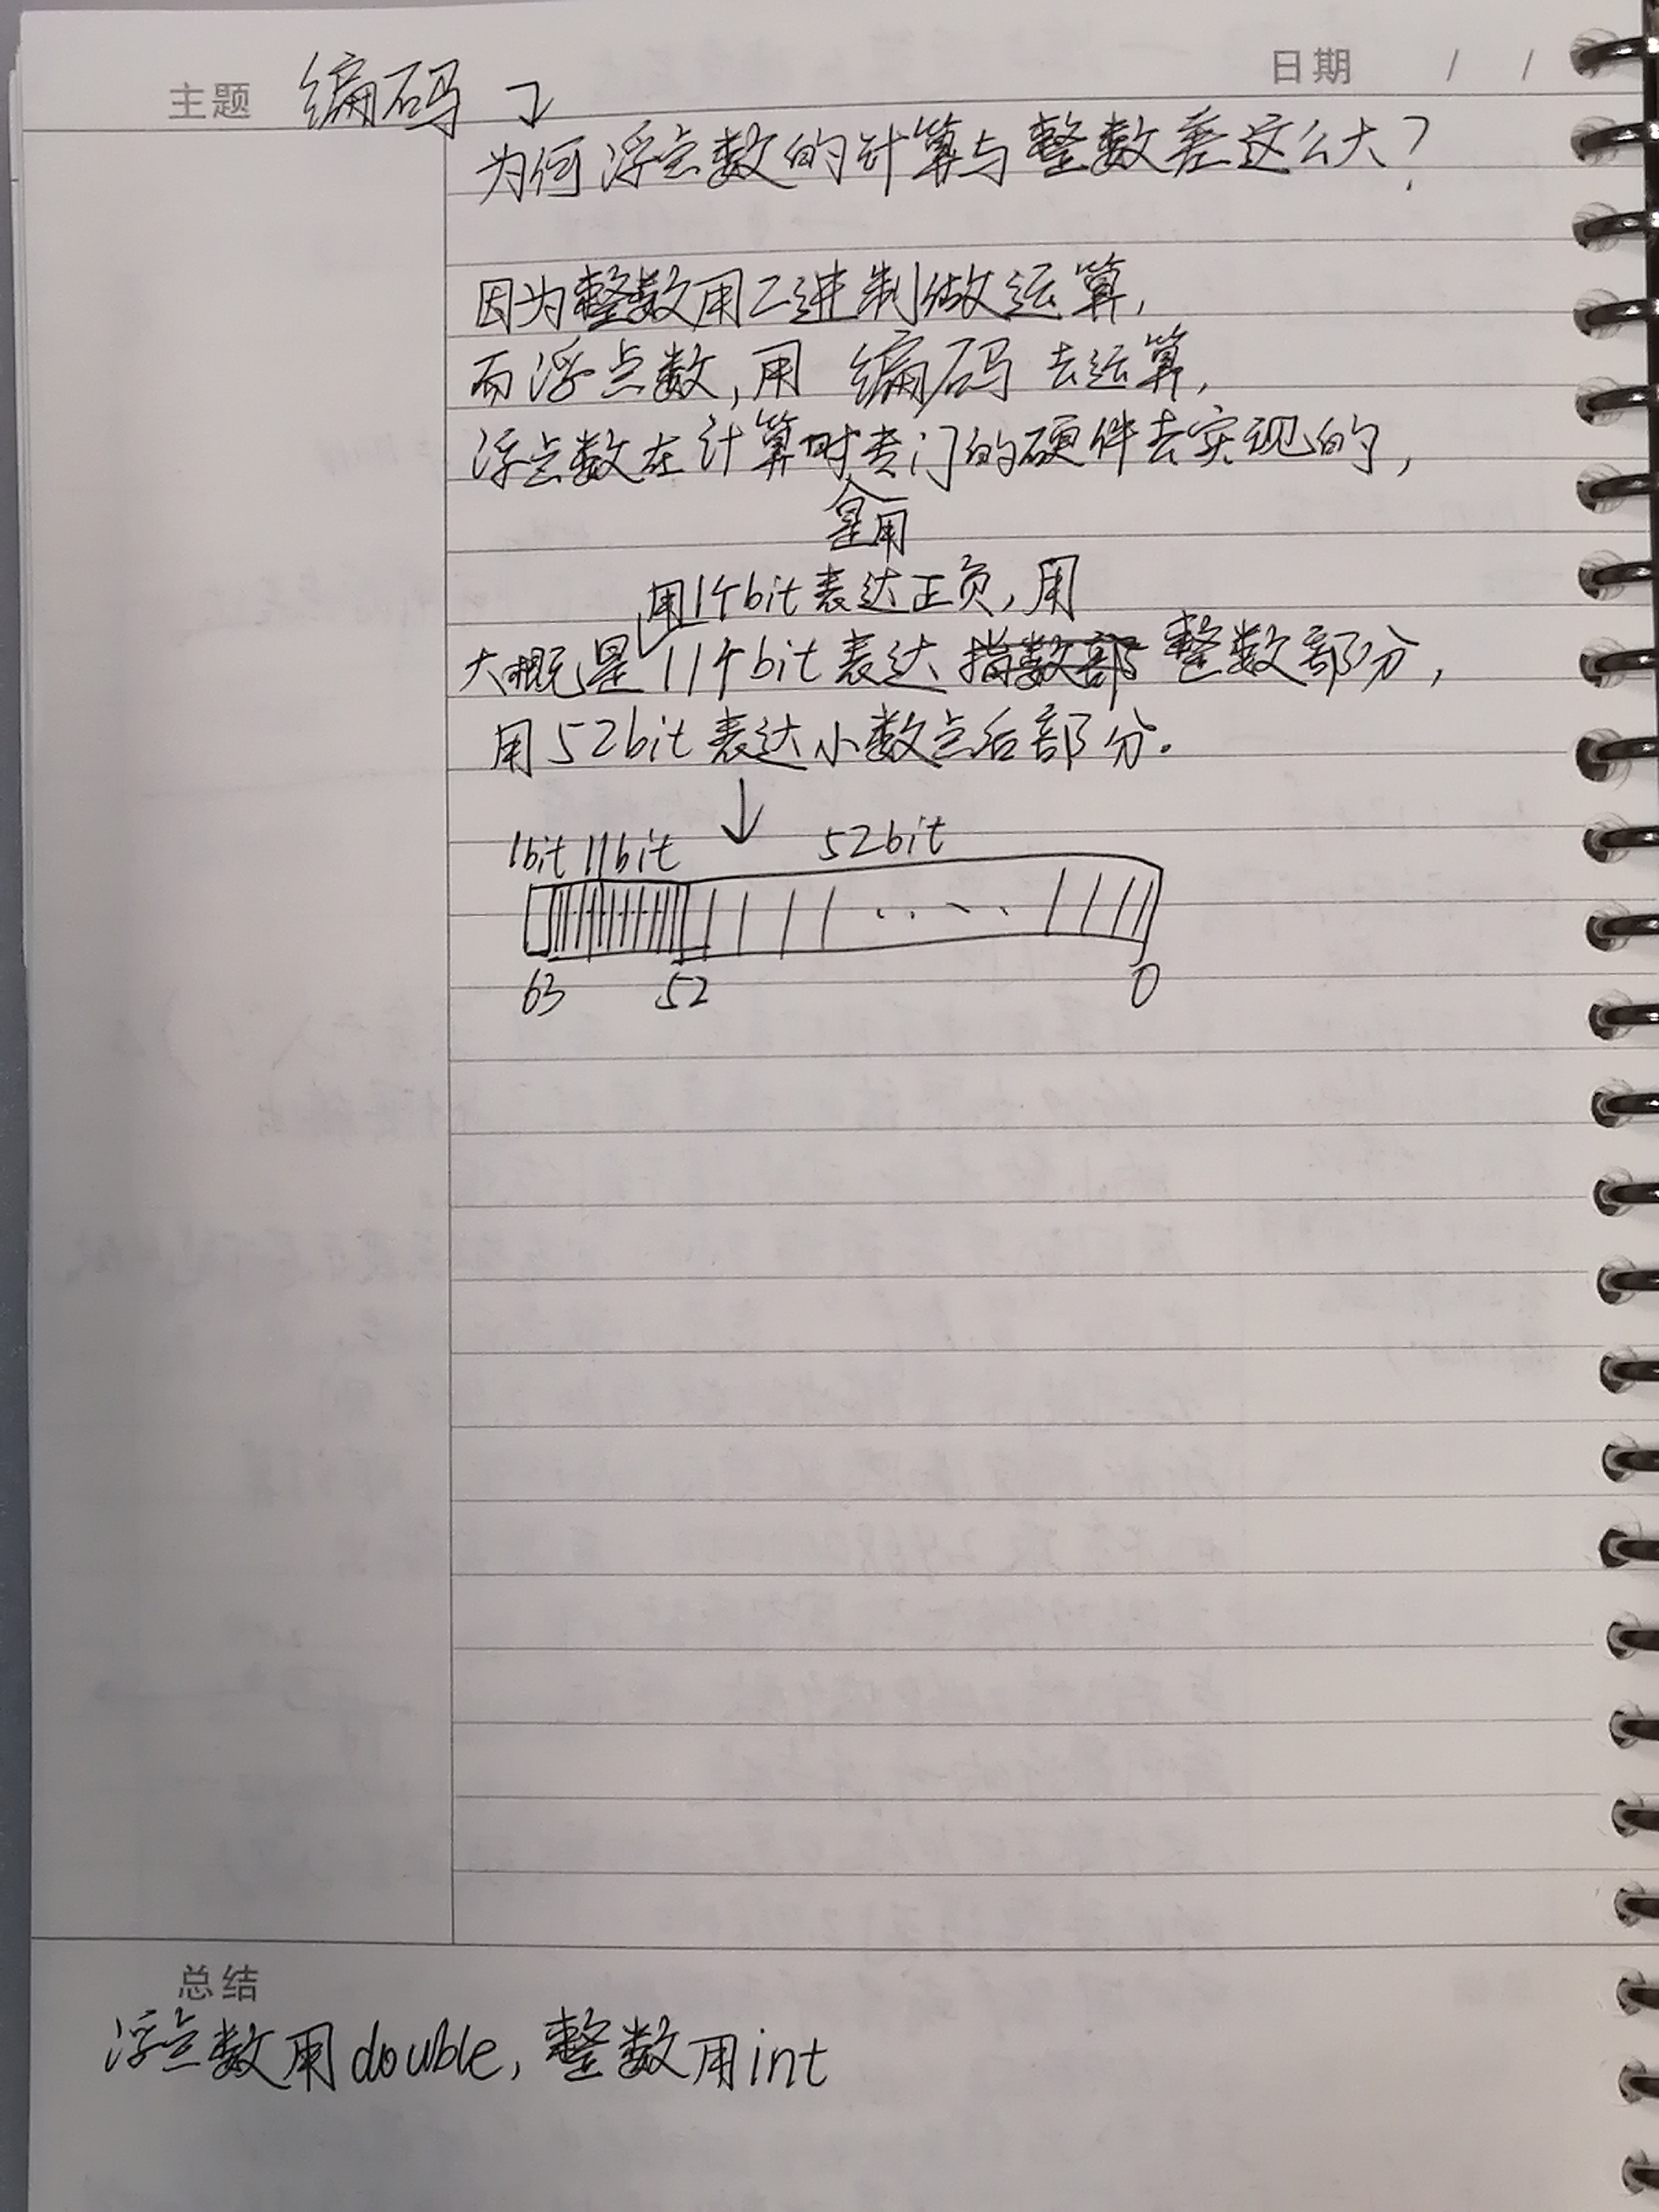 主题 编码 2 日期 / /
为何浮点数的计算与整数差这么大?
因为整数用二进制做运算,
而浮点数,用 编码 去运算,
浮点数在计算时专门的硬件去实现的,
是用
用1个bit表达正负,用
大概是11个bit表达指数部 整数部分,
用52bit表达小数点后部分.
1bit 11bit 52bit
63 52 0
总结
浮点数用double,整数用int